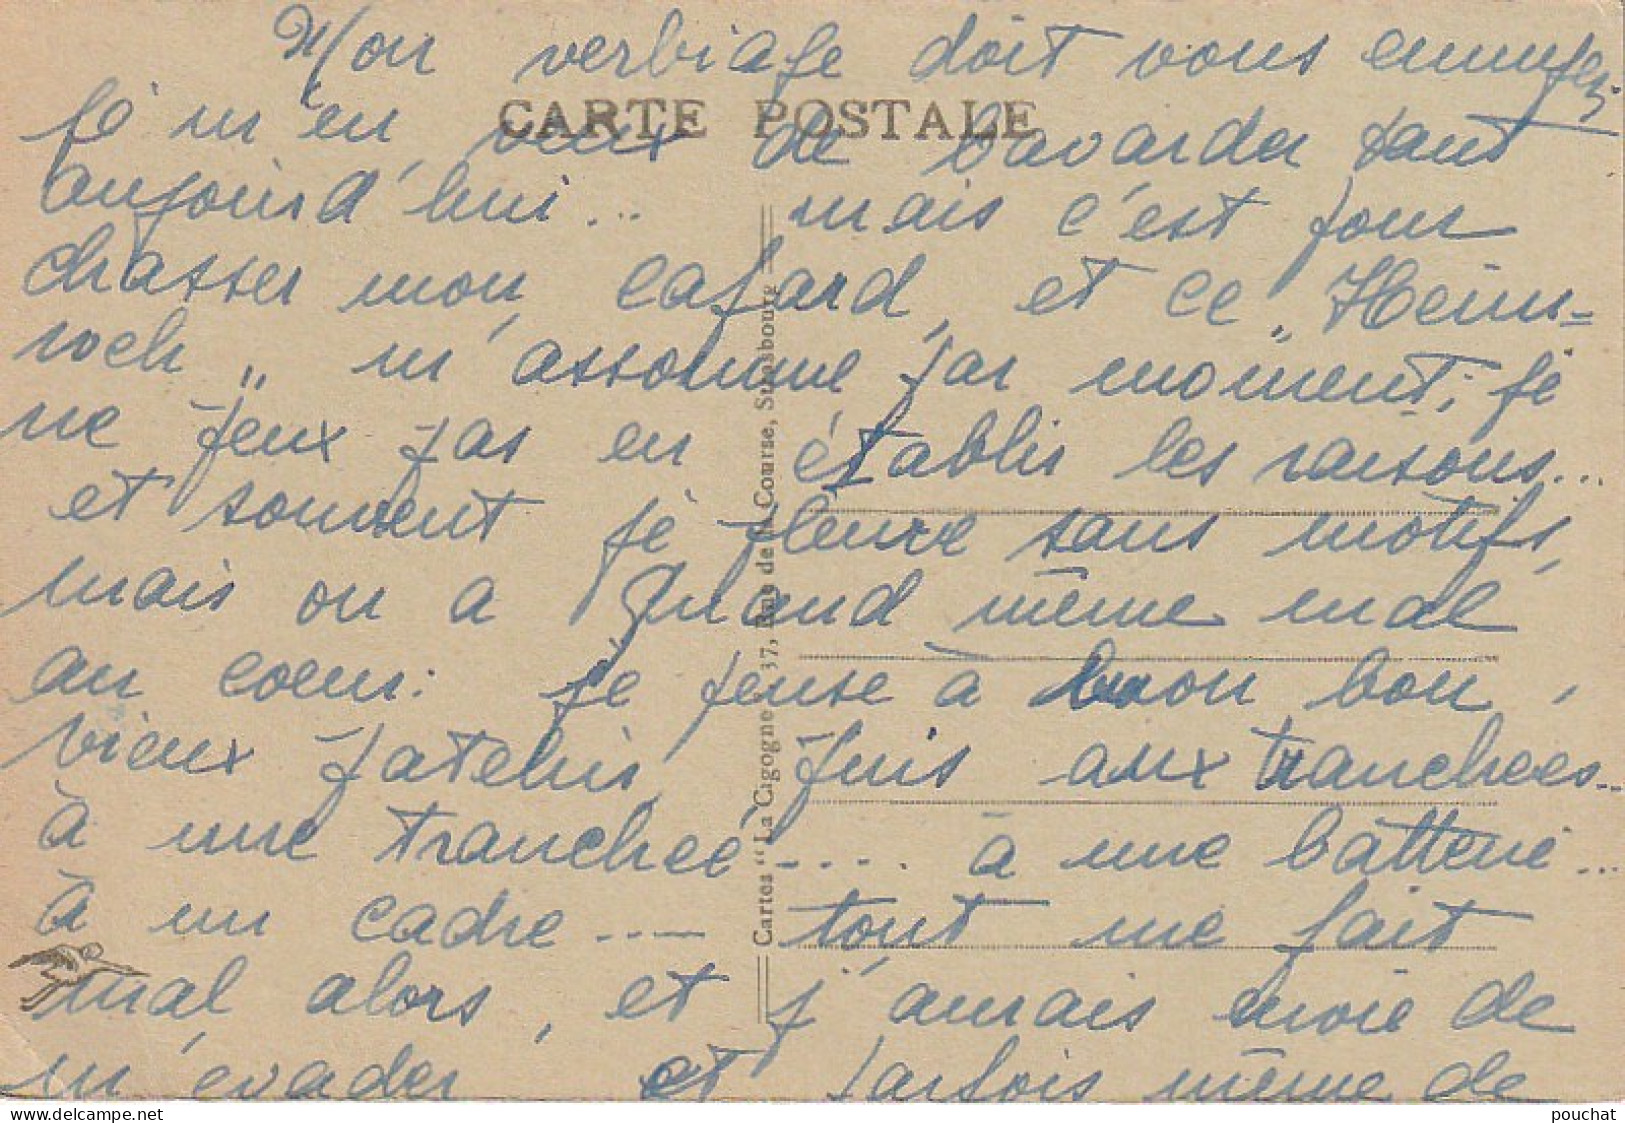 Mon verbiage doit vous ennuyer,
CARTE POSTALE
je m'en veux de bavarder tant
aujourd'hui... mais c'est pour
chasser mon cafard, et ce "Heim-
weh" m'assomme par moment; je
ne peux pas en établir les raisons...
et souvent je pleure sans motifs,
mais on a quand même mal
au coeur: je pense à mon bon,
vieux patelin, puis aux tranchées...
à une tranchée.... à une batterie...
à un cadre.... tout me fait
mal alors, et j'aurais envie de
m'évader et parfois même de
Cartes "La Cigogne", 37, Rue de la Course, Strasbourg
pouchat